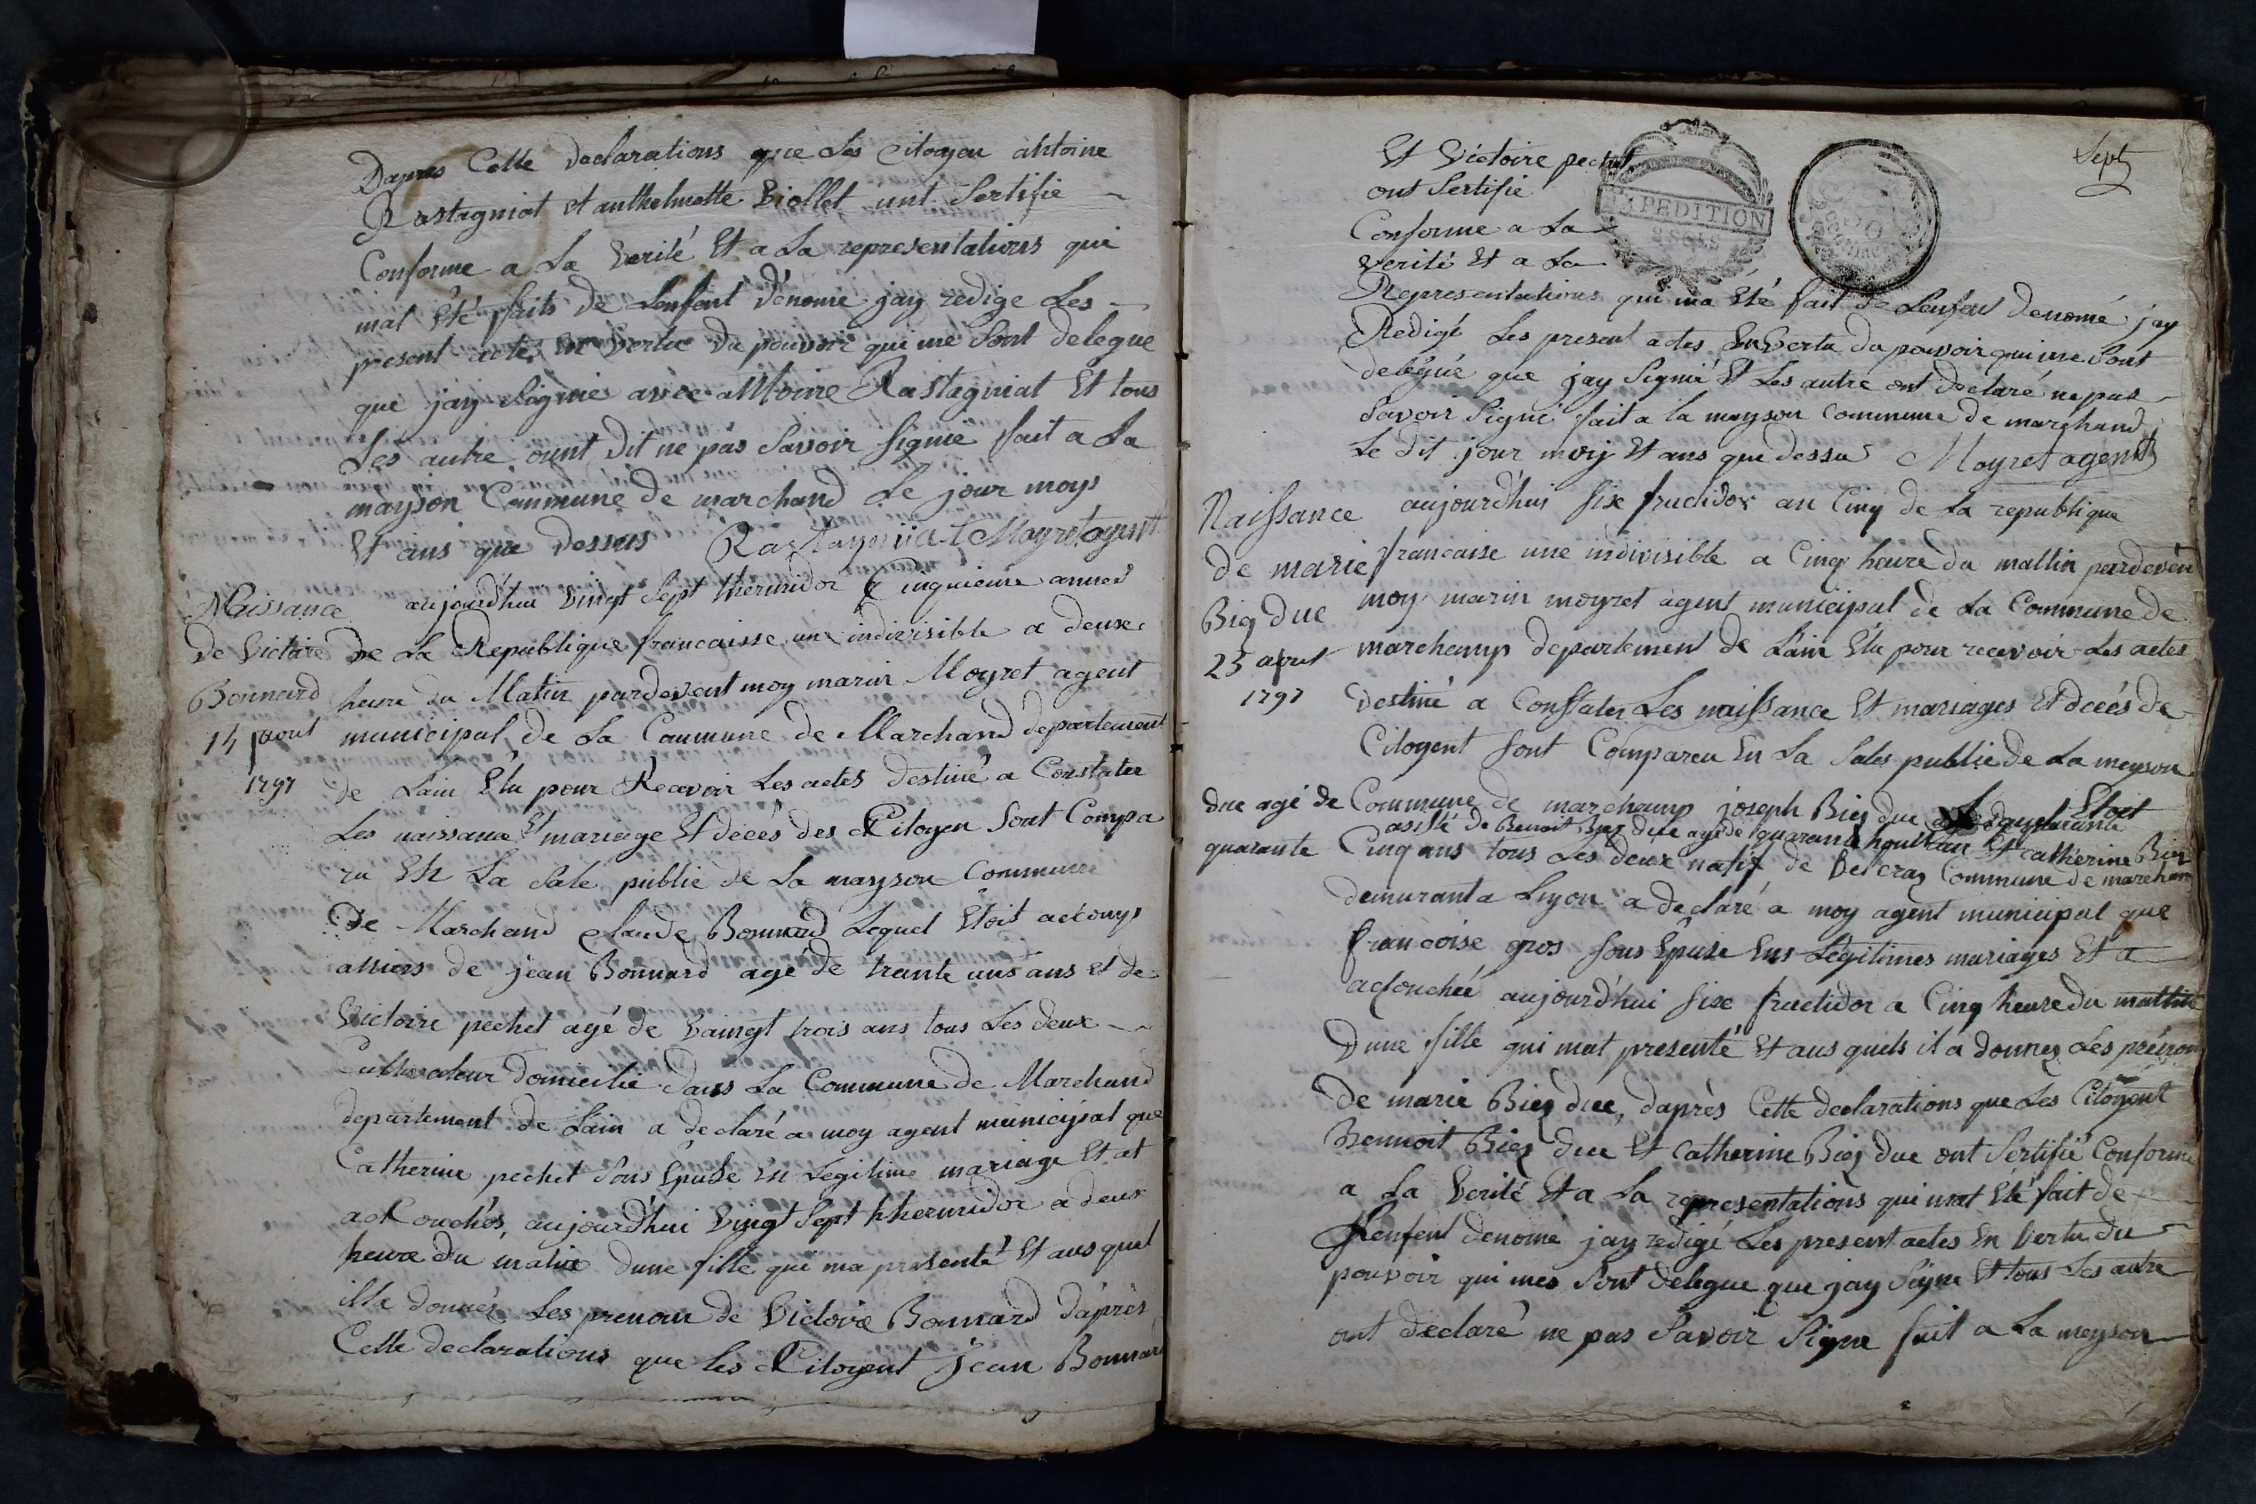 Dapres Cette declarations que Les citoyen antoine
Rastagniat et anthelmette Viollet unt Sertifie
Conforme a La Verité Et a La representations qui
mat Eté faits de Lenfant dénomé jay redige Les
present acte En Vertu du pouvoir qui me Sont delegue
que jay Signie avec antoine Rastagniat Et tous
Les autre ount Dit ne pas Savoir Signié fait a La
mayson Commune de marchand Le jour moys
Et ans que dessus Rastagniat Moyret agent
Naissance
de Victoire
Bonnard
14 aout
1797
aujourdhui Vingt Sept thermidor Cinquieme annéé
De La Republique francaisse une indivisible a deuse
heure du Matin pardevent moy marin Moyret agent
municipal de La Commune de Marchand departement
de Lain Elu pour Recevoir Les actes destiné a Constater
Les naissance Et mariage Et décés des Citoyen Sont Compa
ru En La Sale public de La mayson Commune
De Marchand Claude Bonnard Lequel Etoit ackonys
atners de jean Bonnard agé de trante uns ans et de
Victoire pechet agé de Vaingt trois ans tous Les deux
Cultivateur domicilie dans La Commune de Marchand
departement de Lain a declaré a moy agent municipal que
Catherine pechet Sons Epuse En Legitime mariage Et at
ackouchés, aujourdhui Vingt Sept thermidor a deux
heure du matin dune fille qui ma presenté Et aus quel
ille donnés Les prenom de Victoire Bonnard dapres
Cette declarations que les Citoyent jean Bonnard
Sept
EXPEDITION
2 SOLS
Et Victoire pechet
ont Sertifie
Conforme a La
verité Et a La
Representations qui ma Eté fait de Lenfent denomé jay
Redigé Les present actes En Vertu du pouvoir qui me Sont
delégué que jay Signié Et Les autre ont declaré ne pas
Savoir Signé fait a la mayson Commune de marchand
Le dit jour moy Et ans que dessu Moyret agent
Naissance
de marie
Biez due
23 aout
1797
aujourdhui six fructidor an Cinq de La republique
francaise une indivisible a Cinq heure du mattin pardevén
moy marin moyret agent municipal de La Commune de
marchamp departement de Lain Elu pour recevoir Les actes
destiné a Constater Les naissance Et mariages Et décés de
Citoyent sont Compareu En La Sales public de La meyson
Commune de marchamp joseph Biez due Etoit
asisté de Benoit Biez due agé de quarante huit an Et catherine Biez
due agé de quarante Cinq ans tous Les deux natif de Vercraz Commune de marchamp
demurant a Liyon a declaré a moy agent municipal que
francoise gros sons Epuse Ens Légitimes mariages Et a
acouchéé aujourdhui six fructidor a Cinq heure du mattin
dune fille qui mat presenté Et aus quels il a donnez Les prénom
de marie Biez due, daprès Cette declarations que Les Citoyent
Bennoit Biez due Et catherine Biez due ont Sertifié Conforme
a La Verité Et a La representations qui mat Eté fait de
Lenfent denomé jay redigé Les present actes En Vertu du
pouvoir qui mes Sont delegue que jay Signe Et tous Les autre
ont declaré ne pas Savoir Signe fait a La meyson